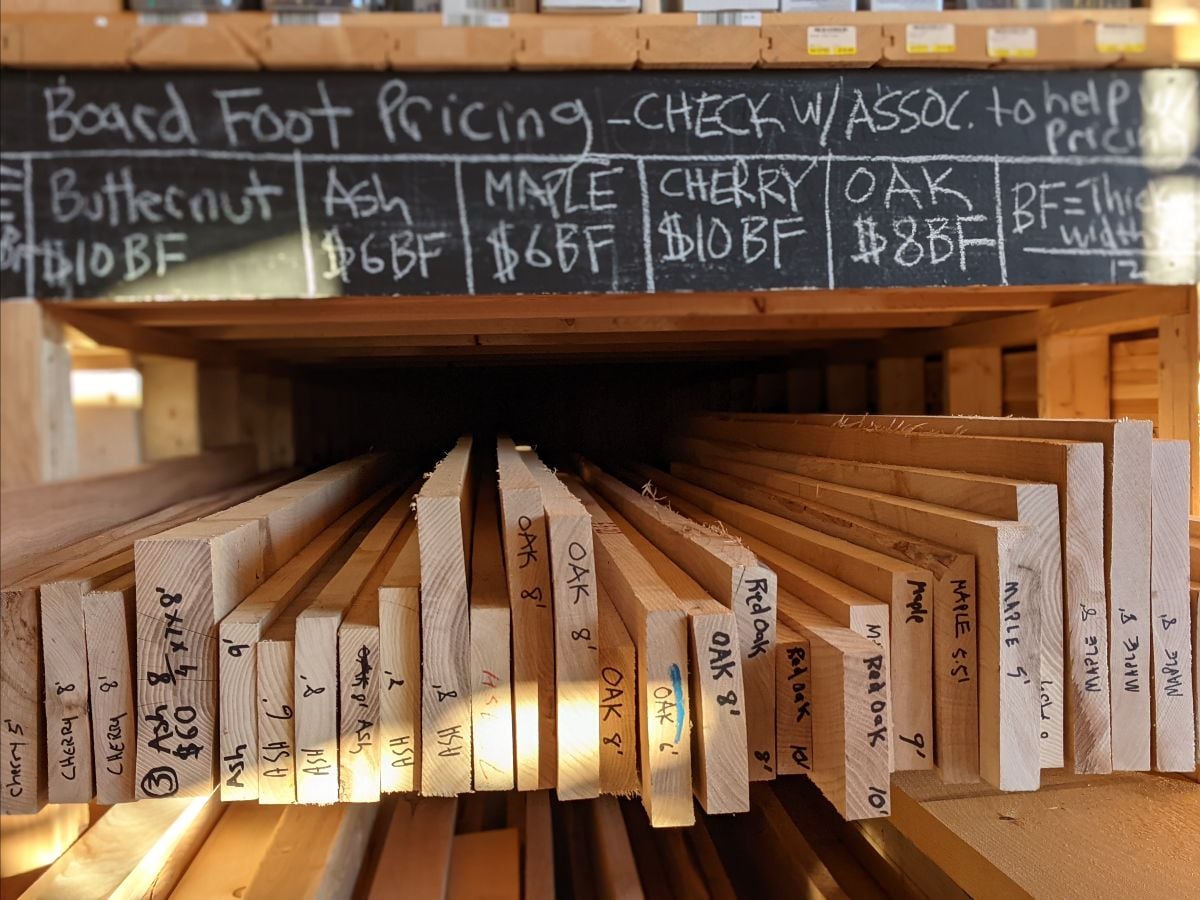 Board Foot Pricing - CHECK W/ ASSOC. to help
Butternut
$10 BF
Ash
$6 BF
MAPLE
$6 BF
CHERRY
$10 BF
OAK
$8 BF
BF =
width
12
cherry 5'
CHERRY 8'
CHERRY 8'
③ Ash 8/4 x 7 x 8'
$60
Ash 9'
ASH 6'
ASH 8'
Ash
ASH 8'
ASH 8'
OAK 8'
OAK 8'
OAK 8'
OAK 6'
OAK 8'
Red Oak 8'
Red oak 10'
Red Oak 10'
Maple 9'
MAPLE 5.5'
MAPLE 5'
MAPLE 8'
MAPLE 8'
MAPLE 8'